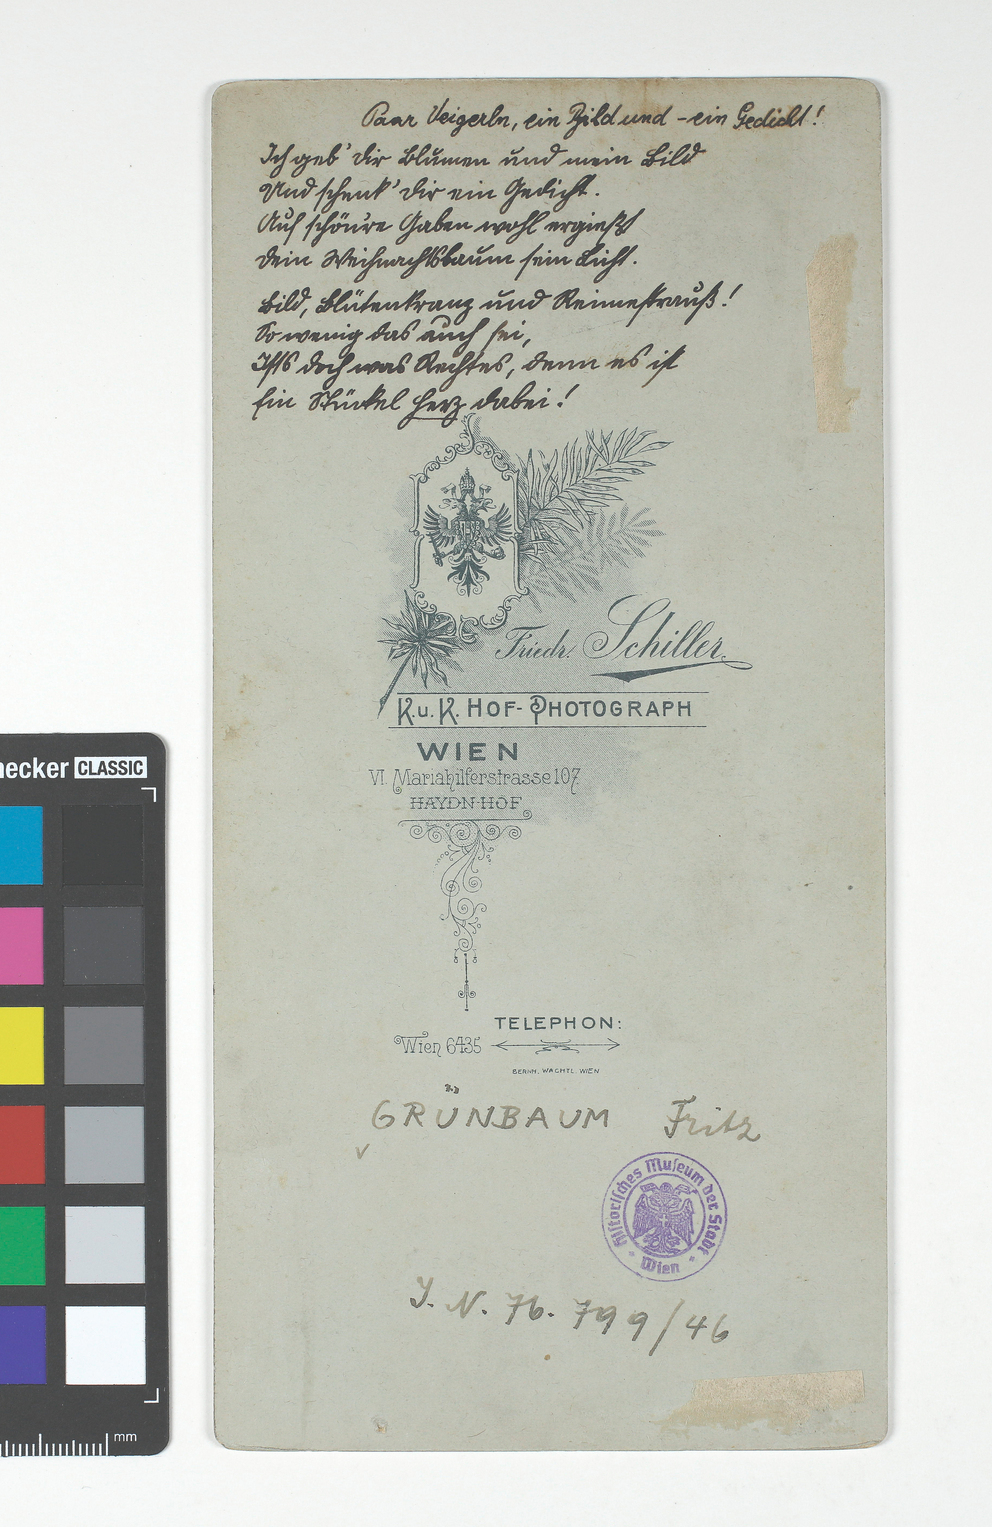 Paar Veigerln, ein Bild und - ein Gedicht!
Ich geb' dir Blumen und mein Bild
Und schenk' dir ein Gedicht.
Auf schön're Gaben wohl ergießt
dein Weihnachtsbaum sein Licht.
Bild, Blütenkranz und Reimestrauß!
So wenig das auch sei,
Ists doch was Rechtes, denn es ist
Ein Stückel Herz dabei!
Friedr. Schiller
K.u.K. HOF-PHOTOGRAPH
WIEN
VI. Mariahilferstrasse 107
HAYDN-HOF
TELEPHON:
Wien 6435
BERNH. WACHTL. WIEN
GRÜNBAUM Fritz
Historisches Museum der Stadt Wien
I. N. 76.799/46
hecker CLASSIC
mm